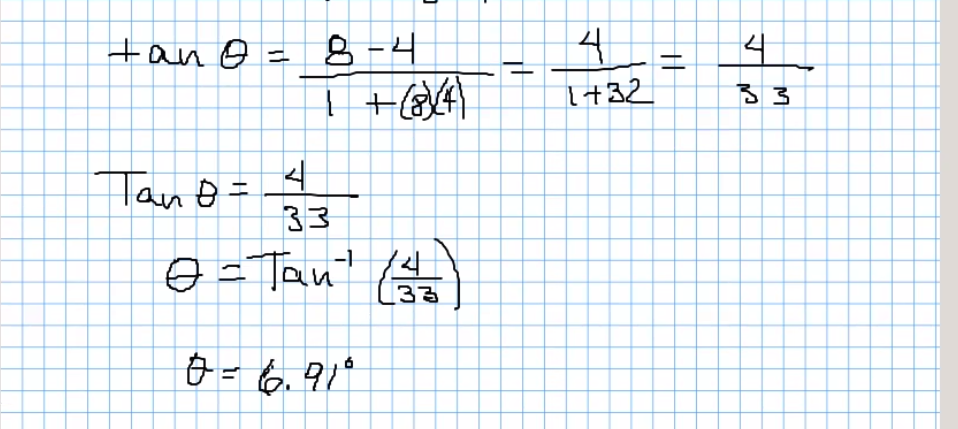 tan θ = 8 - 4 / 1 + (8)(4) = 4 / 1+32 = 4 / 33
Tan θ = 4 / 33
θ = Tan⁻¹ (4 / 33)
θ = 6.91°